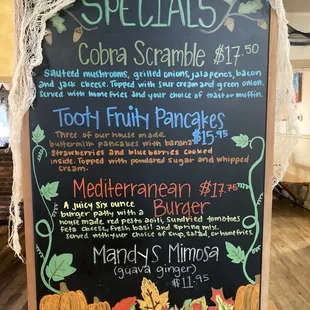 SPECIALS
Cobra Scramble $17.50
Sauteed mushrooms, grilled onions, jalapenos, bacon
and jack cheese. Topped with sour cream and green onion.
Served with homefries and your choice of toast or muffin.
Tooty Fruity Pancakes
Three of our house made $15.95
buttermilk pancakes with banana
strawberries and blue berries cooked
inside. Topped with powdered sugar and whipped
cream.
Mediterranean $17.75
Burger
A juicy six ounce
burger patty with a
house made red pesto aoili, sundried tomatoes
feta cheese, fresh basil and spring mix.
Served with your choice of soup, salad, or homefries.
Mandy's Mimosa
(guava ginger)
$11.95